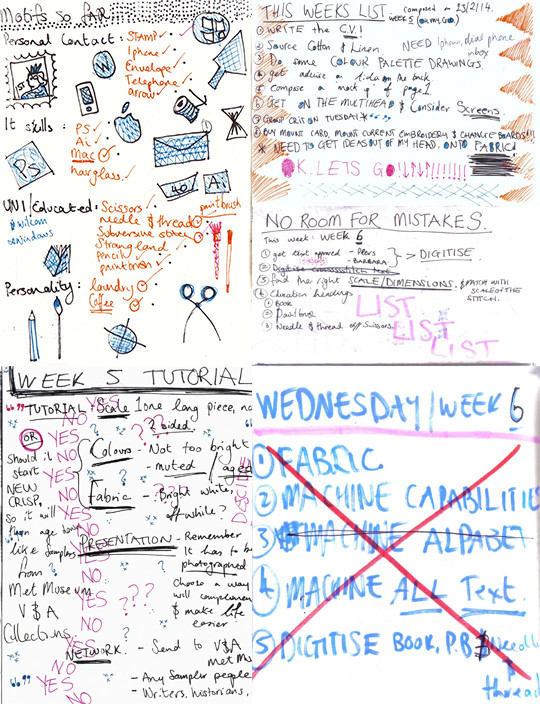 Motifs so far
Personal Contact:
STAMP
Iphone
Envelope
Telephone
arrow
1ST
It skills:
PS
Ai
Mac
hourglass
PS
Ai
UNI/Educated:
Scissors
needle & thread
Subversive
Strongland
pencil
paintbrush
paintbrush
& wilcom
Personality:
laundry
Coffee
THIS WEEKS LIST. composed on 23/2/14.
WEEK 5 (OH MY GOD)
① WRITE the C.V!
② Source Cotton & Linen.
NEED Iphone, dial phone
inbox
③ Do some COLOUR PALETTE DRAWINGS.
④ get advice on the back
⑤ compose a mock of page 1
⑥ GET ON THE MULTIHEAD & Consider Screens
⑦ GROUP CRIT ON TUESDAY
⑧ BUY MOUNT CARD, MOUNT CURRENT EMBROIDERY & CHANGE BOARDS!!!
* NEED TO GET IDEAS OUT OF MY HEAD, ONTO FABRIC!
OK. LETS GO!!!!!!!!!!!
NO ROOM FOR MISTAKES.
This week: WEEK 6
① got text approved - Piers
- BARBARA
> DIGITISE
② Digitise crossstitch text
③ find the right SCALE/DIMENSIONS. & MATCH WITH
SCALE OF THE
STITCH.
④ Education heading
① BOOK
② Paintbrush
③ Needle & thread off Scissors
LIST
LIST
LIST
WEEK 5 TUTORIAL
TUTORIAL: Scale 1 one long piece, no
2 sided.
OR
Should it
start
NEW
CRISP,
so it will
age
like Samplers
from
Met Museum
V&A
Collections
Colours - Not too bright
- muted / aged
Fabric - Bright white,
off-white?
PRESENTATION - Remember
It has to be
photographed
Choose a way
will compliment
& make life
easier.
NETWORK - Send to V&A
Met Mus
- Any Sampler people
- Writers, historians,
YES
NO
YES
NO
YES
NO
YES
NO
YES
NO
YES
NO
YES
NO
YES
NO
WEDNESDAY/WEEK 6
① FABRIC
② MACHINE CAPABILITIE
③ MACHINE ALPABET
④ MACHINE ALL Text.
⑤ DIGITISE BOOK, P.B & Needle
&
thread